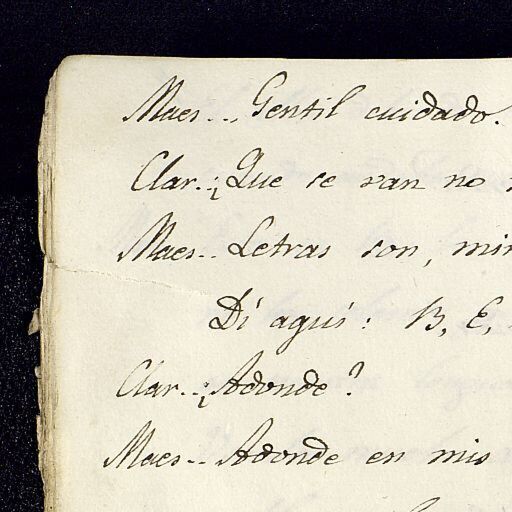 Maes... Gentil cuidado.
Clar.. ¿Que se van no
Maes.. Letras son,
Di aquí: B, E,
Clar.. ¿Adonde?
Maes.. Adonde en mis